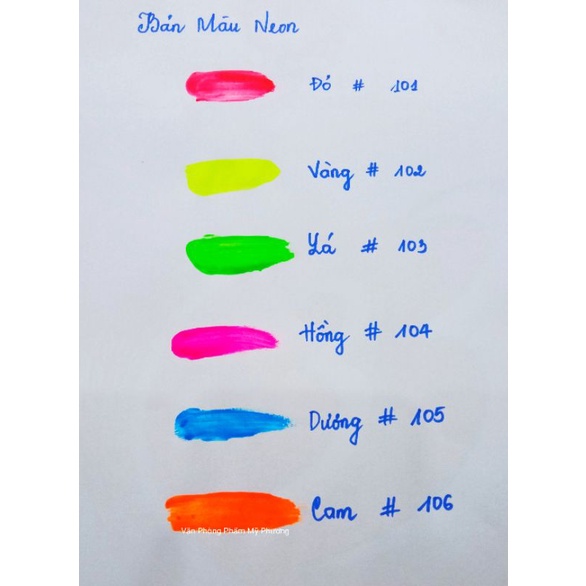 Bản Màu Neon
Đỏ # 101
Vàng # 102
Lá # 103
Hồng # 104
Dương # 105
Cam # 106
Văn Phòng Phẩm Mỹ Phương